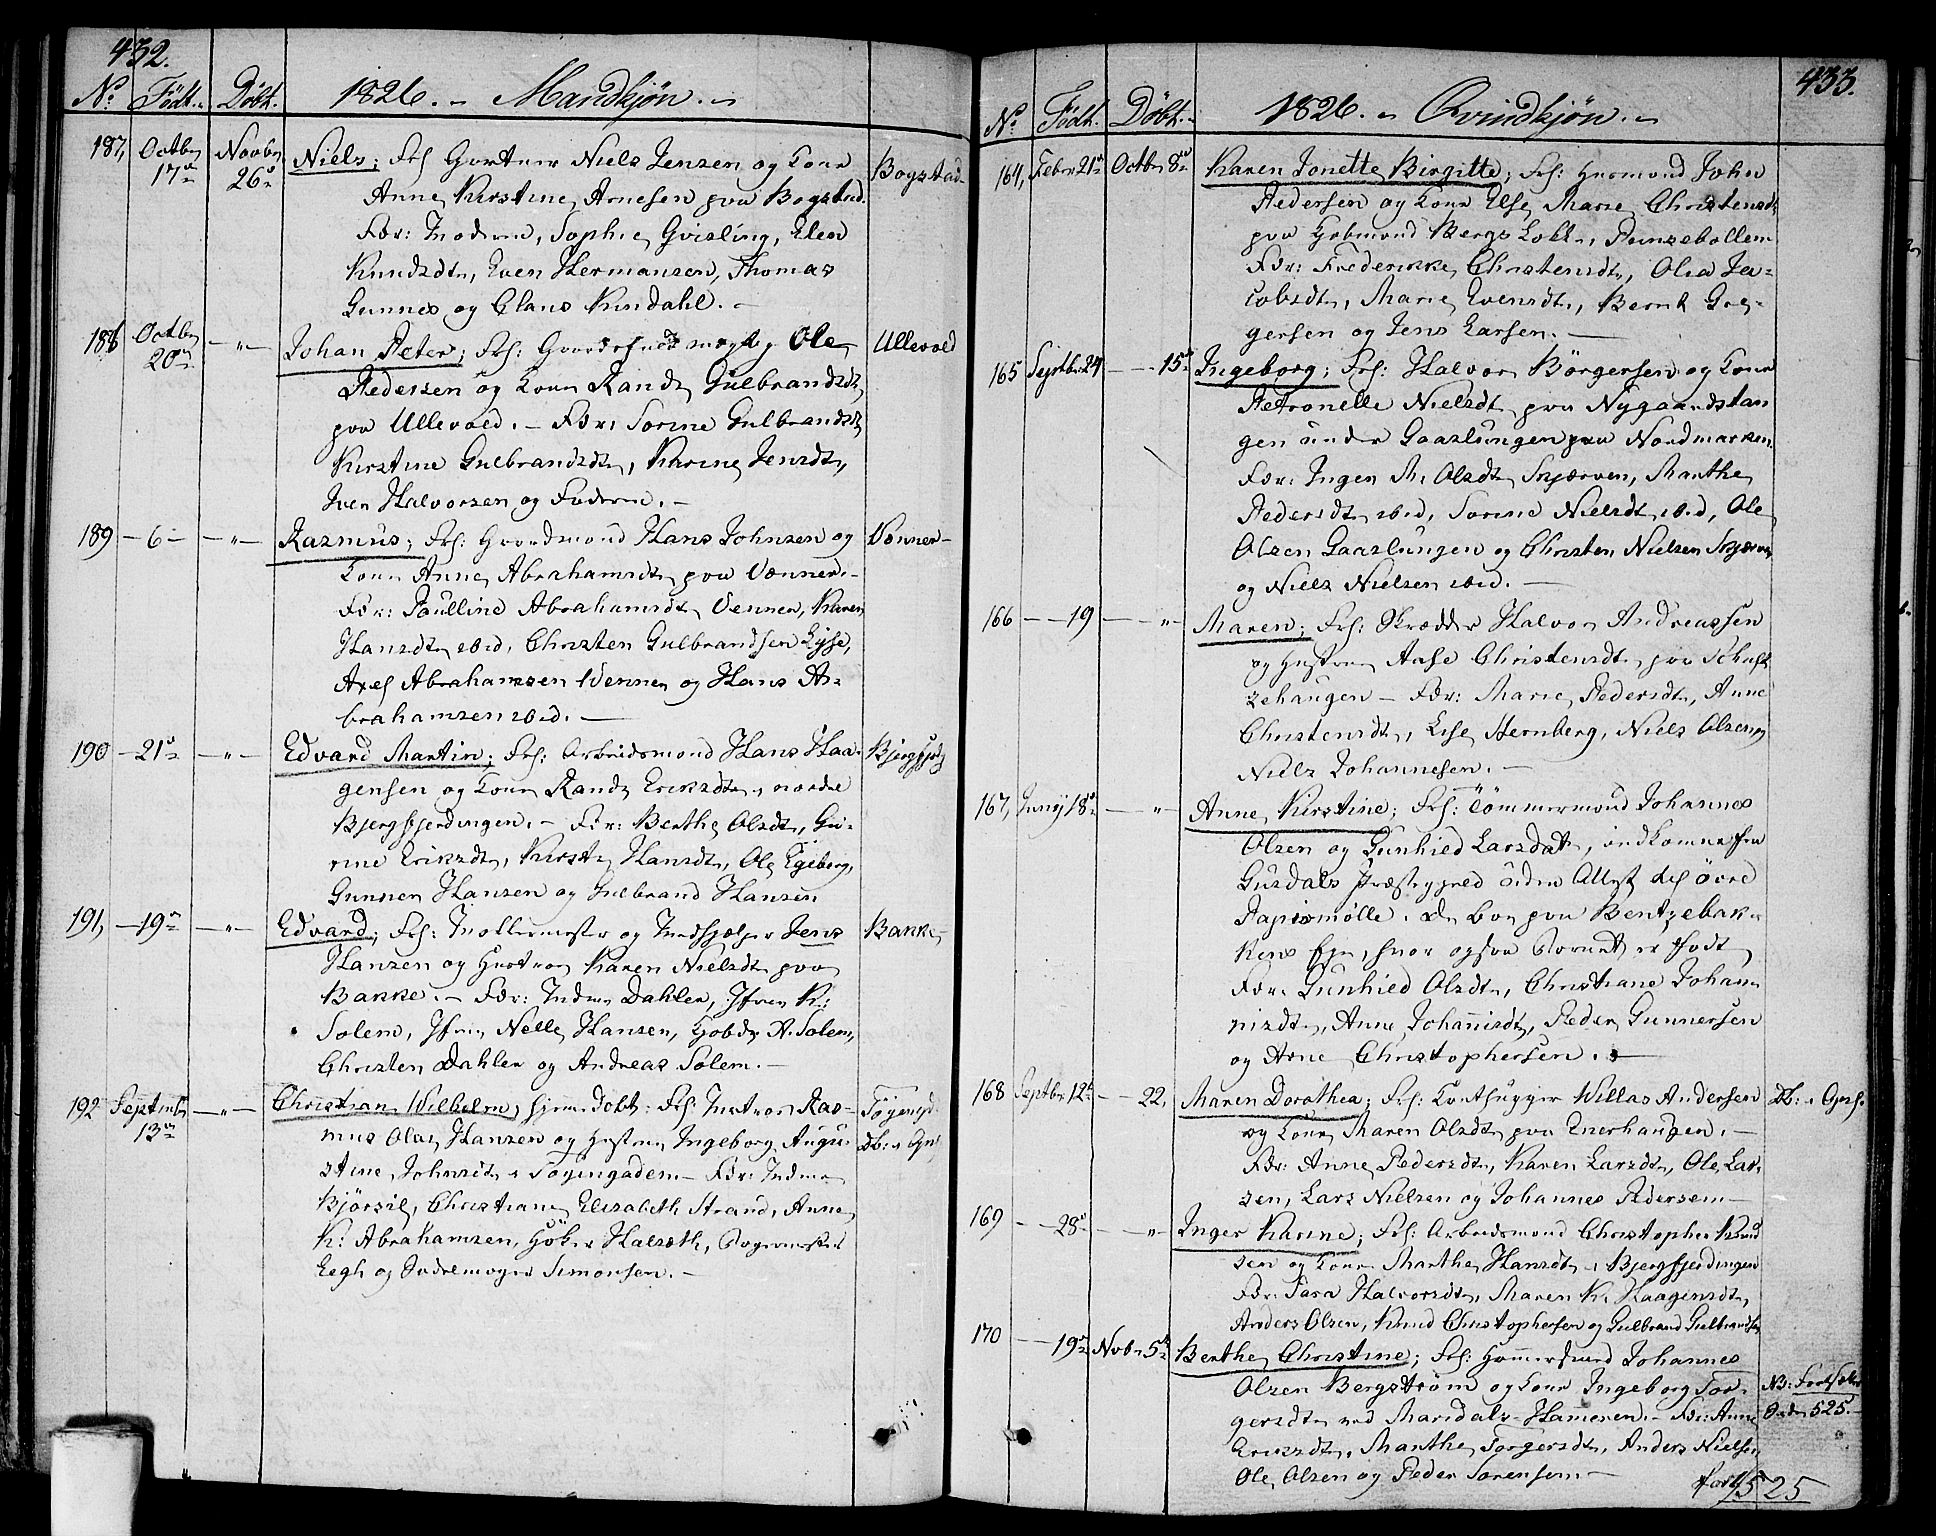 432.
No Födt. Döbt. 1826. Mandkjøn.
187, Octbr 17de Novbr 26de Niels; Frs: Gartner Niels Jensen og Kone Bogstad
Anne Kirstine Arnesen paa Bogstad.
Fdr: Moderen, Sophie Gvisling, Elen
Knudsdtr, Even Hermansen, Thomas
Gunnes og Claus Kindahl.
188 Octbr 20de — " — Johan Peter; Frs: Ole Ullevold
Pedersen og Kone Randi Gulbrandsdtr
paa Ullevold. — Fdr: Sorine Gulbrandsdtr
Kirstine Gulbrandsdtr, Karine Jensdtr,
Iver Halvorsen og Faderen.
189 — 6 — — " — Rasmus; Frs: Gaardmand Hans Johnsen og Vænner
Kone Anne Abrahamsdtr paa Vænner.
Fdr: Paulline Abrahamsdtr Vennen, Karen
Hansdtr ibid, Christen Gulbrandsen Lysse,
Axel Abrahamsen Vennen og Hans A-
brahamsen ibid.
190 — 21de — " — Edvard Martin; Frs: Arbeidsmand Hans Haa-
gensen og Kone Randi Eriksdtr i nordre
Bjergfjerdingen. — Fdr: Berthe Olsdtr, Gu-
rine Eriksdtr, Kirsti Hansdtr, Ole Egeberg,
Gunner Hansen og Gulbrand Hansen
191, — 19de — " — Edvard; Frs: Møllermester og Jens Bakke
Hansen og Hustrue Karen Nielsdtr paa
Bakke. — Fdr: Dahler, Jfrue K:
Solem, Jfrue Nelle Hansen, A. Solem,
Christen Dahler og Andreas Solem.
192 Septembr 13de — " — Christian Wilhelm, hjemmedöbt: Frs: Ras- Töyengd
mus Olai Hansen og Hustrue Ingeborg Augu- Db: i
stine Johnsdtr i Töyengaden — Fdr:
Björsil, Christiane Elisabeth Strand, Anne
K: Abrahamsen, Höker Halseth,
Eegh og Simonsen.
433.
No Födt. Döbt. 1826. Qvindkjøn.
164, Febr 21de Octbr 8de Karen Jonette Birgitte; Frs: Huusmand John
Pedersen og Kone Else Marie Christensdtr
paa Kobmand Bergs Løkke, Prinsebollen
Fdr: Frederikke Christensdtr, Olea Ja-
cobsdtr, Marie Evensdtr, Bernt Gre-
gersen og Jens Larsen.
165 Septbr 24 — 15de Ingeborg; Frs: Halvor Börgersen og Kone
Petronelle Nielsdtr paa Nygaardstan
gen under Gaaslungen paa Nordmarken
Fdr: Inger M. Olsdtr Skjærven, Marthe
Pedersdtr ibid, Sorine Nielsdtr ibid, Ole
Olsen Gaaslungen og Christen Nielsen Skjærven
og Niels Nielsen ibid.
166 — 19 — " — Maren; Frs: Skrædder Halvor Andreassen
og Hustrue Aase Christensdtr paa
sehaugen — Fdr: Marie Pedersdtr, Anne
Christensdtr, Lise Hernberg, Niels Olsen og
Niels Johannesen.
167, Juny 18de — " — Anne Kirstine; Frs: Tömmermand Johannes
Olsen og Gunhild Larsdatr, indkomne fra
Gusdals Præstegjeld uden Attest til övre
Papirmölle. De boe paa Bentsebak-
kens Eje, hvor ogsaa Barnet er födt
Fdr: Gunhild Olsdtr, Christiane Johan-
nisdtr, Anne Johannisdtr, Peder Gunnersen
og Arne Christophersen.
168 Septbr 12te — 22, Maren Dorothea; Frs: Willas Andersen Db: i
og Kone Maren Olsdtr paa Enerhaugen.
Fdr: Anne Pedersdtr, Karen Larsdtr, Ole Lar-
sen, Lars Nielsen og Johannes Pedersen
169 — 28de — " Inger Karine; Frs: Arbeidsmand Christopher Knud
sen og Kone Marthe Hansdtr i Bjergfjerdingen
Fdr: Sara Halvorsdtr, Maren K. Haagensdtr,
Anders Olsen, Knud Christophersen og Gulbrand Gulbrandsen
170 — 19de Nobr 5te Berthe Christine; Frs: Johannes
Olsen Bergström og Kone Ingeborg Tor- NB: Fortsættes
gersdtr ved Maridals-Hameren. — Fdr: Anne Side 525.
Eriksdtr, Marthe Torgersdtr, Anders Nielsen
Ole Olsen og Peder Sørensen.
525